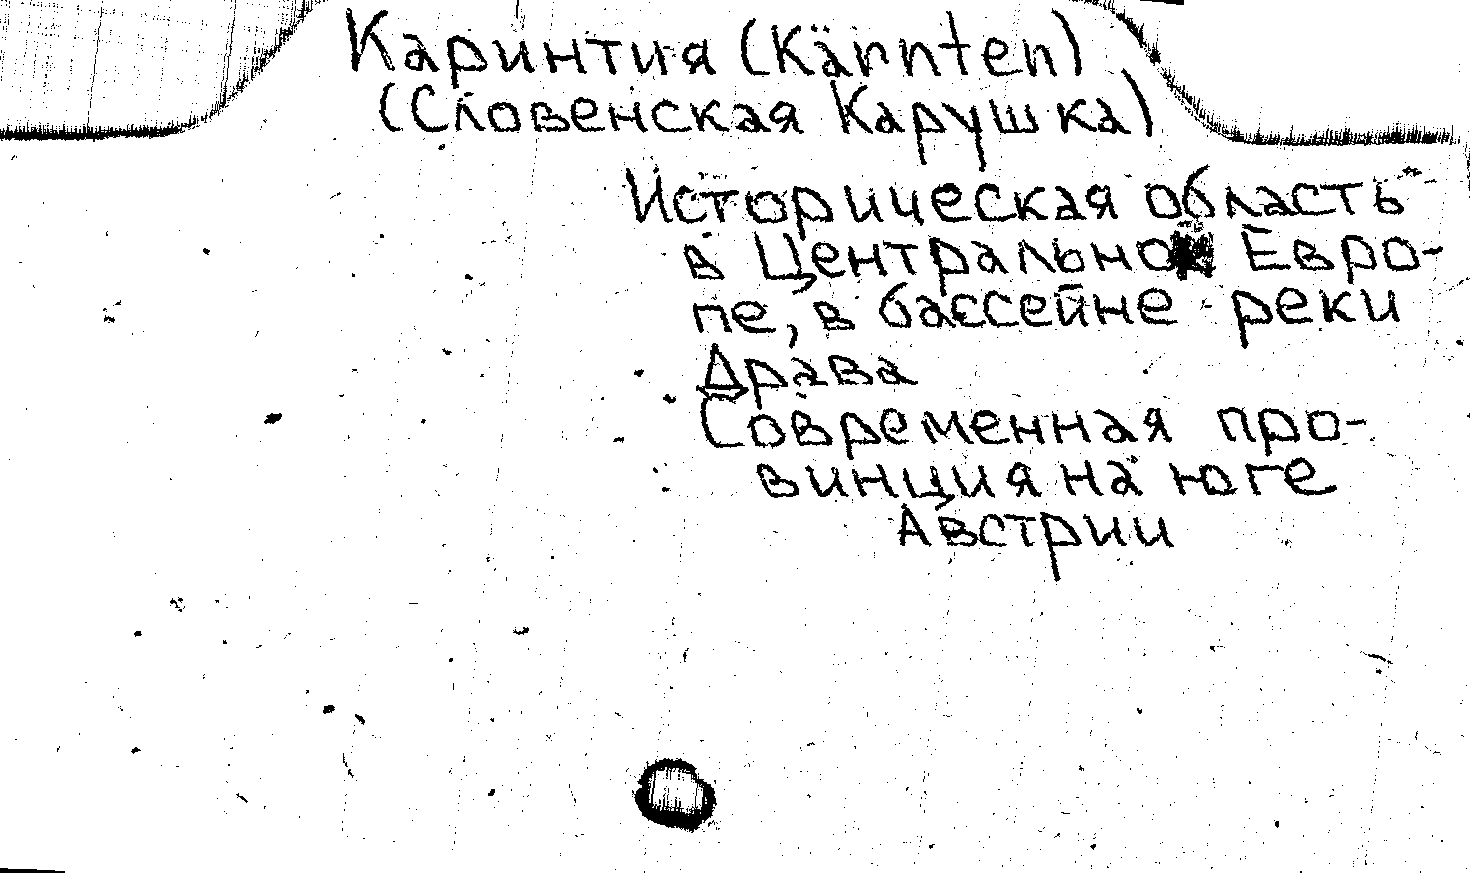 Каринтия (Kärnten)
(Словенская Карушка)
Историческая область
в Центральной Евро-
пе, в бассейне реки
Драва
Современная про-
винция на юге
Австрии